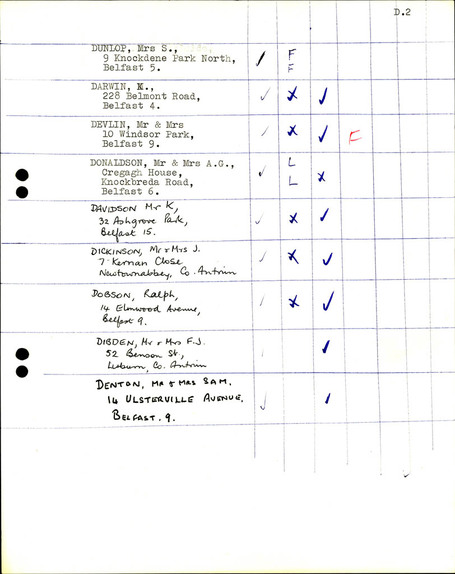 D.2
DUNLOP, Mrs S.,
9 Knockdene Park North,
Belfast 5.
F
F
DARWIN, K.,
228 Belmont Road,
Belfast 4.
DEVLIN, Mr & Mrs
10 Windsor Park,
Belfast 9.
F
DONALDSON, Mr & Mrs A.G.,
Cregagh House,
Knockbreda Road,
Belfast 6.
L
L
DAVIDSON Mr K,
32 Ashgrove Park,
Belfast 15.
DICKINSON, Mr & Mrs J.
7 Kernan Close
Newtownabbey, Co. Antrim
DOBSON, Ralph,
14 Elmwood Avenue,
Belfast 9.
DIBDEN, Mr & Mrs F.J.
52 Benson St.,
Lisburn, Co. Antrim
DENTON, MR & MRS SAM.
14 ULSTERVILLE AVENUE.
BELFAST. 9.